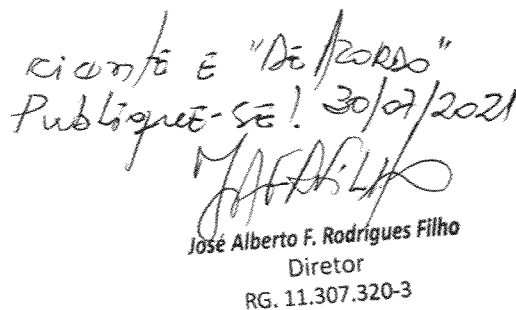 ciente E "DE ACORDO"
PubliquE-SE! 30/07/2021
José Alberto F. Rodrigues Filho
Diretor
RG. 11.307.320-3